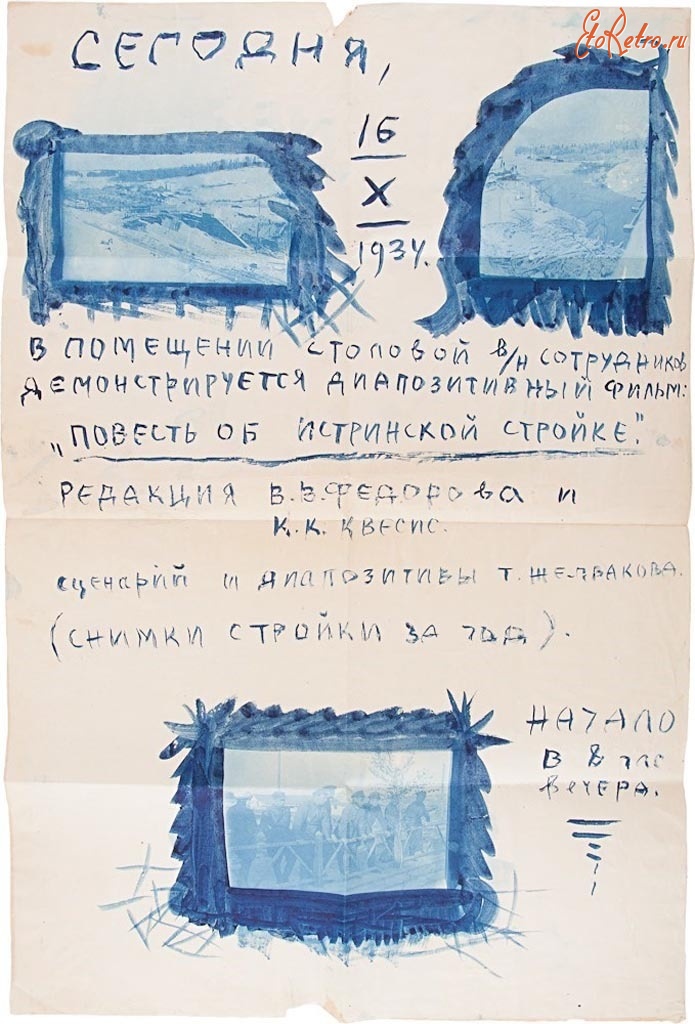 EtoRetro.ru
СЕГОДНЯ,
16
X
1934.
В ПОМЕЩЕНИИ СТОЛОВОЙ в/н СОТРУДНИКОВ
ДЕМОНСТРИРУЕТСЯ ДИАПОЗИТИВНЫЙ ФИЛЬМ:
„ПОВЕСТЬ ОБ ИСТРИНСКОЙ СТРОЙКЕ."
РЕДАКЦИЯ В.В.ФЕДОРОВА И
К.К. КВЕСИС.
сценарий и диапозитивы т. ЖЕЛВАКОВА.
(СНИМКИ СТРОЙКИ ЗА ГОД).
НАЧАЛО
В 8 час
ВЕЧЕРА.